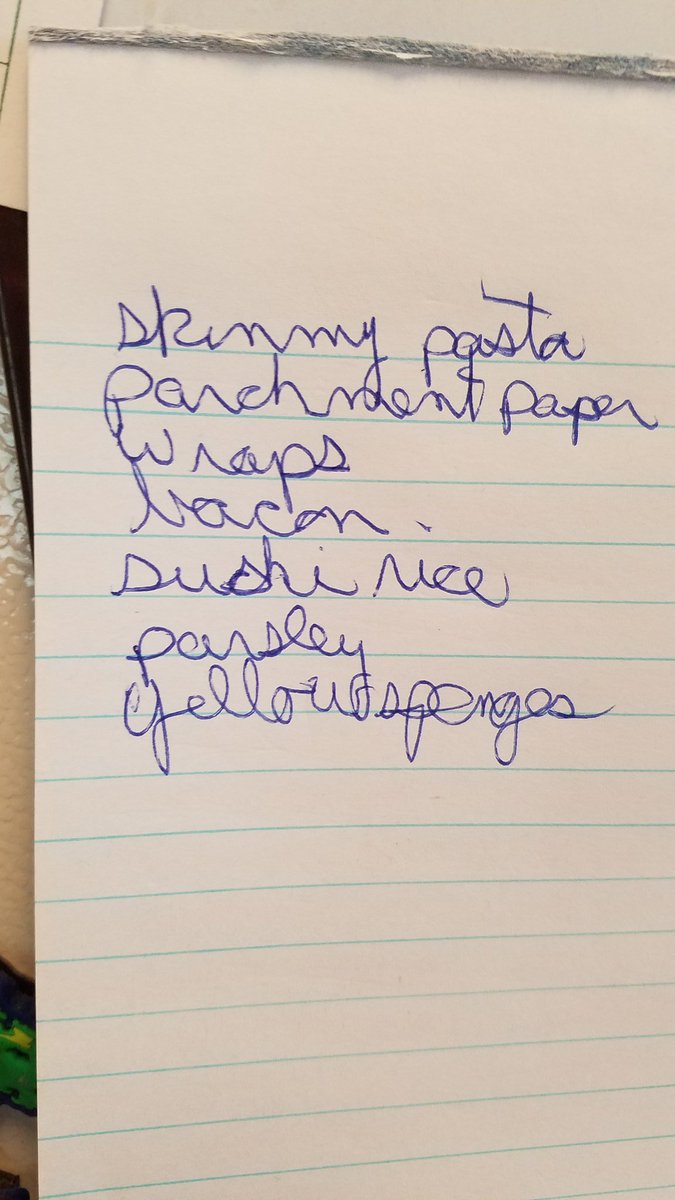 skinny pasta
parchment paper
wraps
bacon.
sushi rice
parsley
yellow sponges